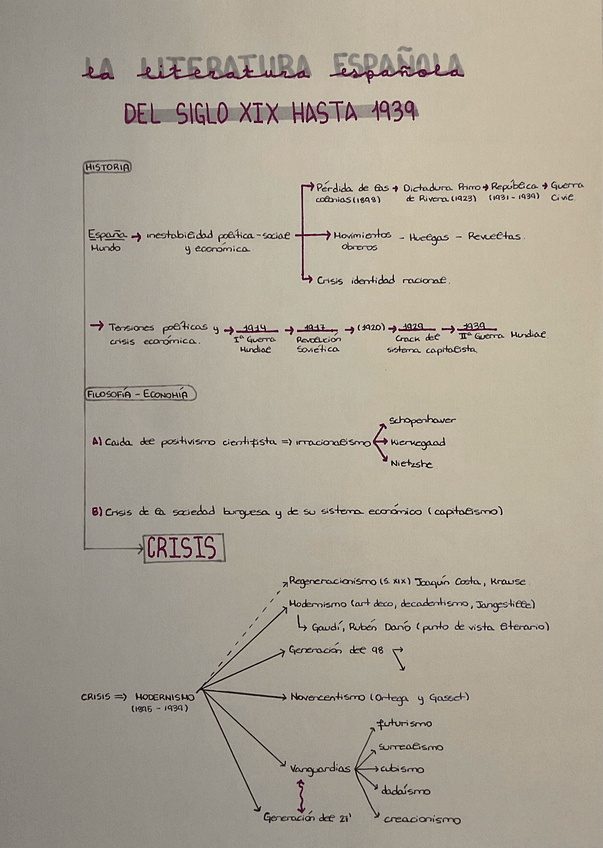 LA LITERATURA ESPAÑOLA
la literatura española
DEL SIGLO XIX HASTA 1939
HISTORIA
España → inestabilidad política-social
Mundo y económica
Pérdida de las → Dictadura Primo → República → Guerra
colonias (1898) de Rivera (1923) (1931-1939) Civil
Movimientos - Huelgas - Revueltas.
obreros
Crisis identidad nacional.
→ Tensiones políticas y → 1914 → 1917 → (1920) → 1929 → 1939
crisis económica. Iª Guerra Revolución Crack del IIª Guerra Mundial
Mundial Soviética sistema capitalista
FILOSOFÍA - ECONOMÍA
A) Caída del positivismo cientifista => irracionalismo
Schopenhaver
Kierkegaard
Nietzshe
B) Crisis de la sociedad burguesa y de su sistema económico (capitalismo)
CRISIS
Regeneracionismo (S. XIX) Joaquín Costa, Krause
Modernismo (art deco, decadentismo, Jangestille)
↳ Gaudí, Rubén Darío (punto de vista literario)
Generación del 98
CRISIS => MODERNISMO
(1895 - 1939)
Novencentismo (Ortega y Gasset)
Vanguardias
futurismo
surrealismo
cubismo
dadaísmo
creacionismo
Generación del 21'